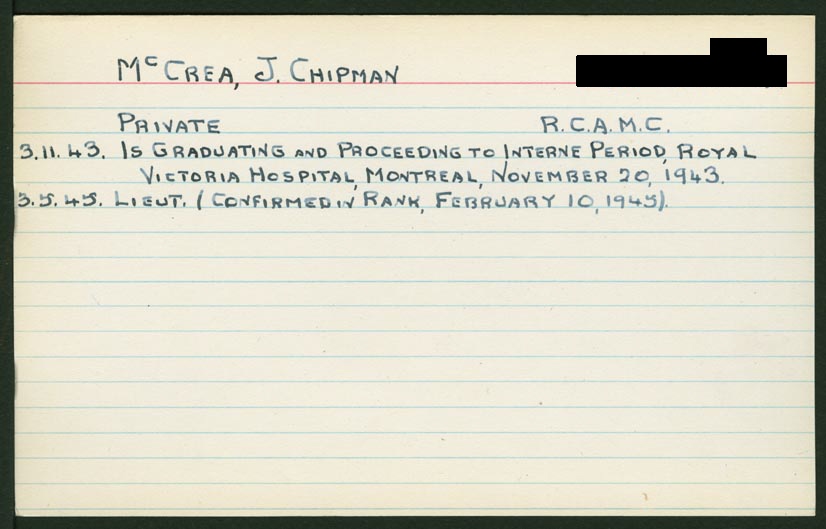 McCREA, J. CHIPMAN
PRIVATE R.C.A.M.C.
3.11.43. IS GRADUATING AND PROCEEDING TO INTERNE PERIOD, ROYAL
VICTORIA HOSPITAL, MONTREAL, NOVEMBER 20, 1943.
3.5.45. LIEUT. (CONFIRMED IN RANK, FEBRUARY 10, 1945).